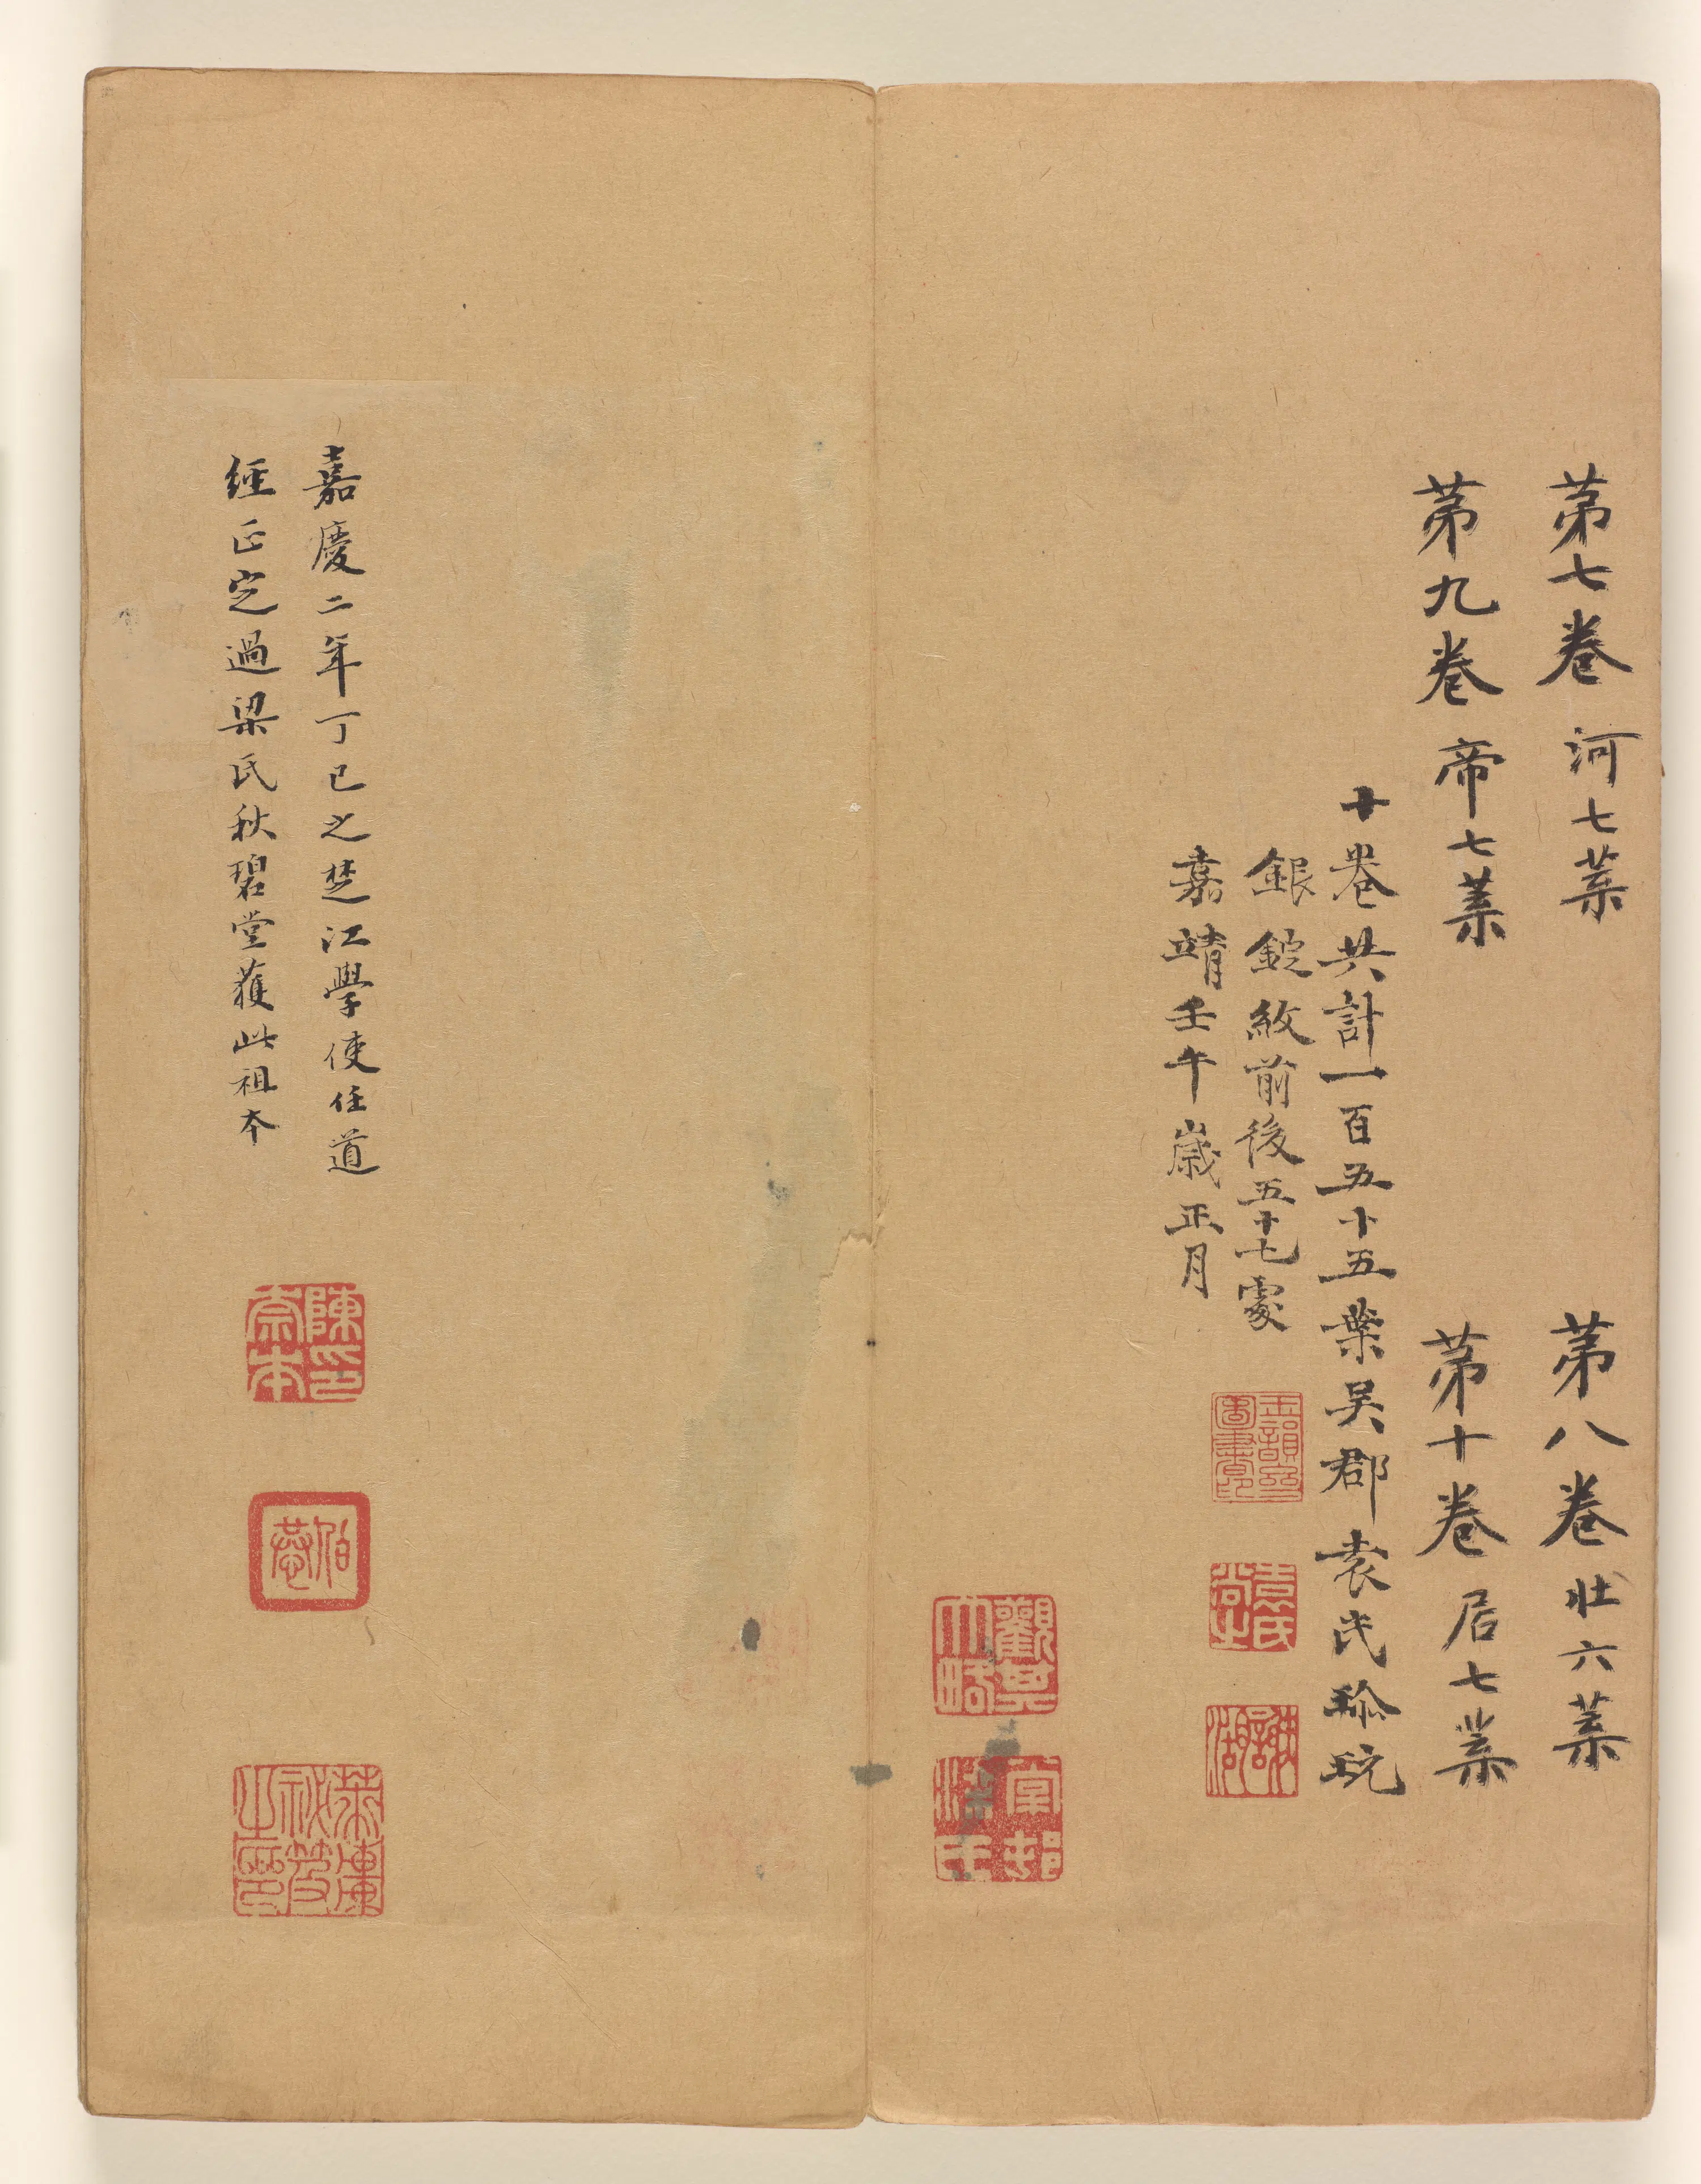 第七卷 河七葉
第八卷 壯六葉
第九卷 帝七葉
第十卷 居七葉
十卷共計一百五十五葉吳郡袁氏珎玩
銀錠紋前後五十七處
嘉靖壬午歲正月
袁氏尚之
謝湖
觀其大略
棠邨
梁氏
嘉慶二年丁巳之楚江學使任道
經正定過梁氏秋碧堂獲此祖本
陳印崇本
伯恭